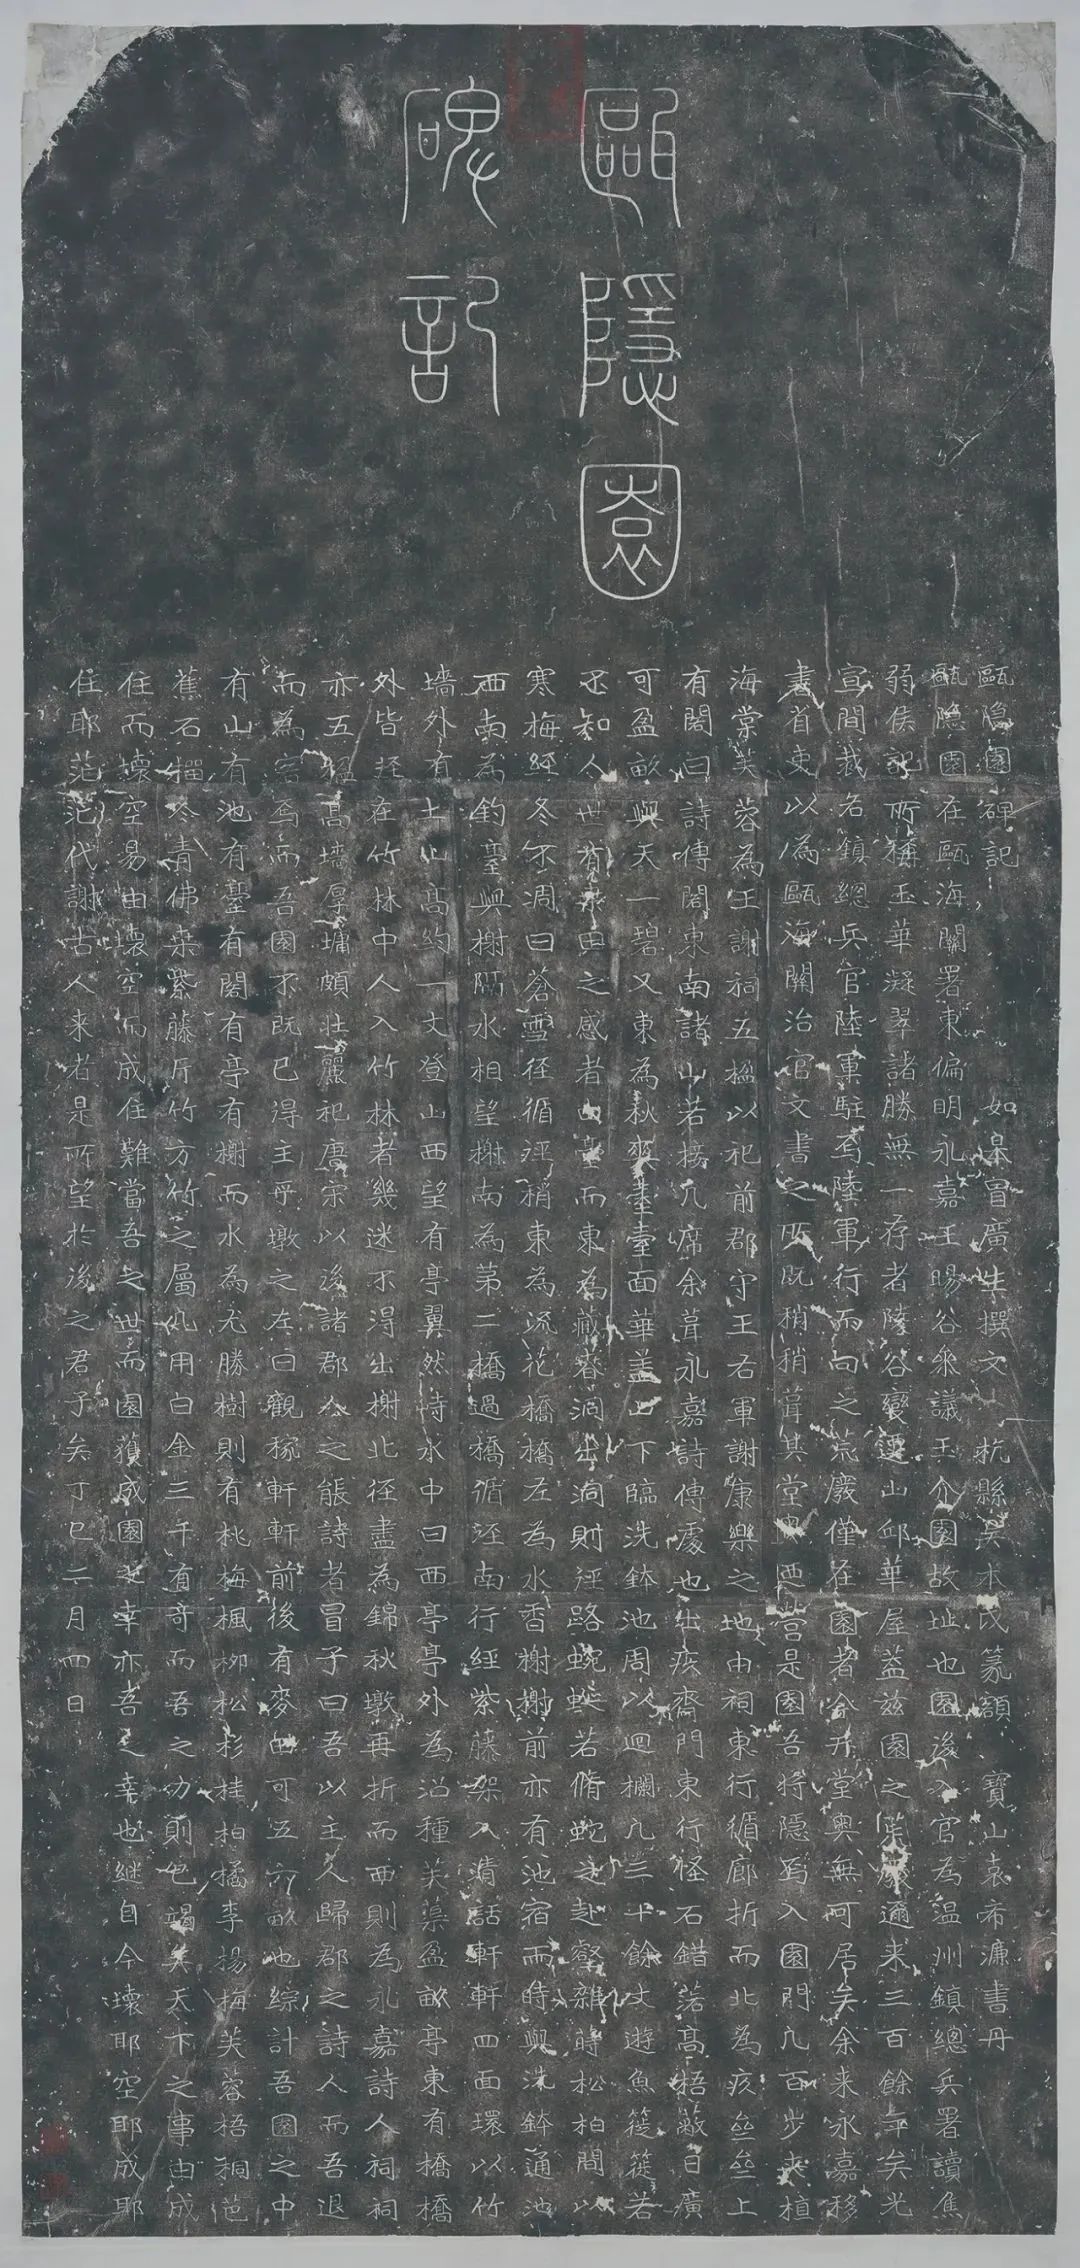 甌隱園
碑記
甌隐園碑記 如皋冒廣生撰文 杭縣吳本篆額 寶山袁希濂書丹
甌隐園在甌海關署東偏明永嘉王暘谷叅議玉介園故址也園後入官為温州鎮總兵署讀焦
弱侯記所稱玉華凝翠諸勝無一存者陵谷變遷山邱華屋蓋兹園之廢邇来三百餘年矣光
宣間裁名鎮總兵官陸軍駐焉陸軍行而向之荒廢僅在園者今并堂奥無可居矣余来永嘉移
書省吏以為甌海關治官文書之所既稍稍葺其堂奥迺營是園吾将隱焉入園門凡百步夹植
海棠芙蓉為王謝祠五楹以祀前郡守王右軍謝康樂之地由祠東行循廊折而北為疚壘壘上
有閣曰詩傳閣東南諸山若接几席余葺永嘉詩傳處也出疚齋門東行怪石錯落高梧蔽日廣
可盈畝與天一碧又東為秋爽臺臺面華盖山下臨洗鉢池周以迴欄凡三十餘丈遊魚簁簁若
不知人世有桑田之感者由臺而東為藏春洞出洞則徑路蜿蜒若脩蛇之赴壑雜蒔松柏間以
寒梅經冬不凋曰蒼雪径循徑稍東為流花橋橋左為水香榭榭前亦有池宿雨時與洗鉢通池
西南為釣臺與榭隔水相望榭南為第二橋過橋循逕南行經紫藤架入清話軒軒四面環以竹
墻外有土山高約一丈登山西望有亭翼然峙水中曰西亭亭外為沼種芙蕖盈畝亭東有橋橋
外皆逕在竹林中人入竹林者幾迷不得出榭北径盡為錦秋墩再折而西則為永嘉詩人祠祠
亦五楹髙墻厚墉頗壮麗祀唐宋以後諸郡人之能詩者冒子曰吾以主人歸郡之詩人而吾退
而為客焉而吾園不既已得主乎墩之左曰觀稼軒軒前後有麥田可五六畝也綜計吾園之中
有山有池有臺有閣有亭有榭而水為尤勝樹則有桃梅楓柳松杉桂柏橘李楊梅芙蓉梧桐芭
蕉石榴冬青佛桒紫藤斤竹方竹之屬凡用白金三千有奇而吾之力則已竭矣天下之事由成
住而壊空易由壊空而成住難當吾之世而園獲成園之幸亦吾之幸也继自今壊耶空耶成耶
住耶茫茫代謝古人来者是所望於後之君子矣丁巳二月四日